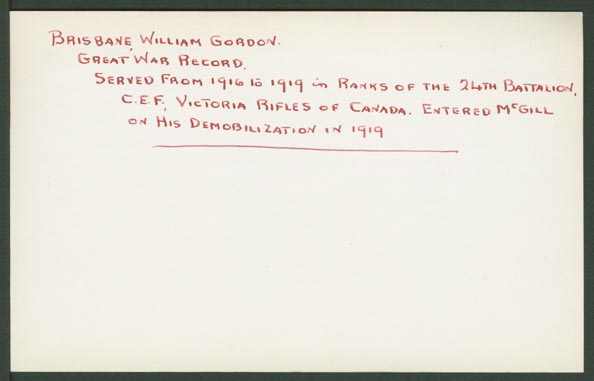 BRISBANE, WILLIAM GORDON.
GREAT WAR RECORD.
SERVED FROM 1916 to 1919 in RANKS OF THE 24TH BATTALION,
C.E.F., VICTORIA RIFLES OF CANADA. ENTERED McGILL
ON HIS DEMOBILIZATION IN 1919